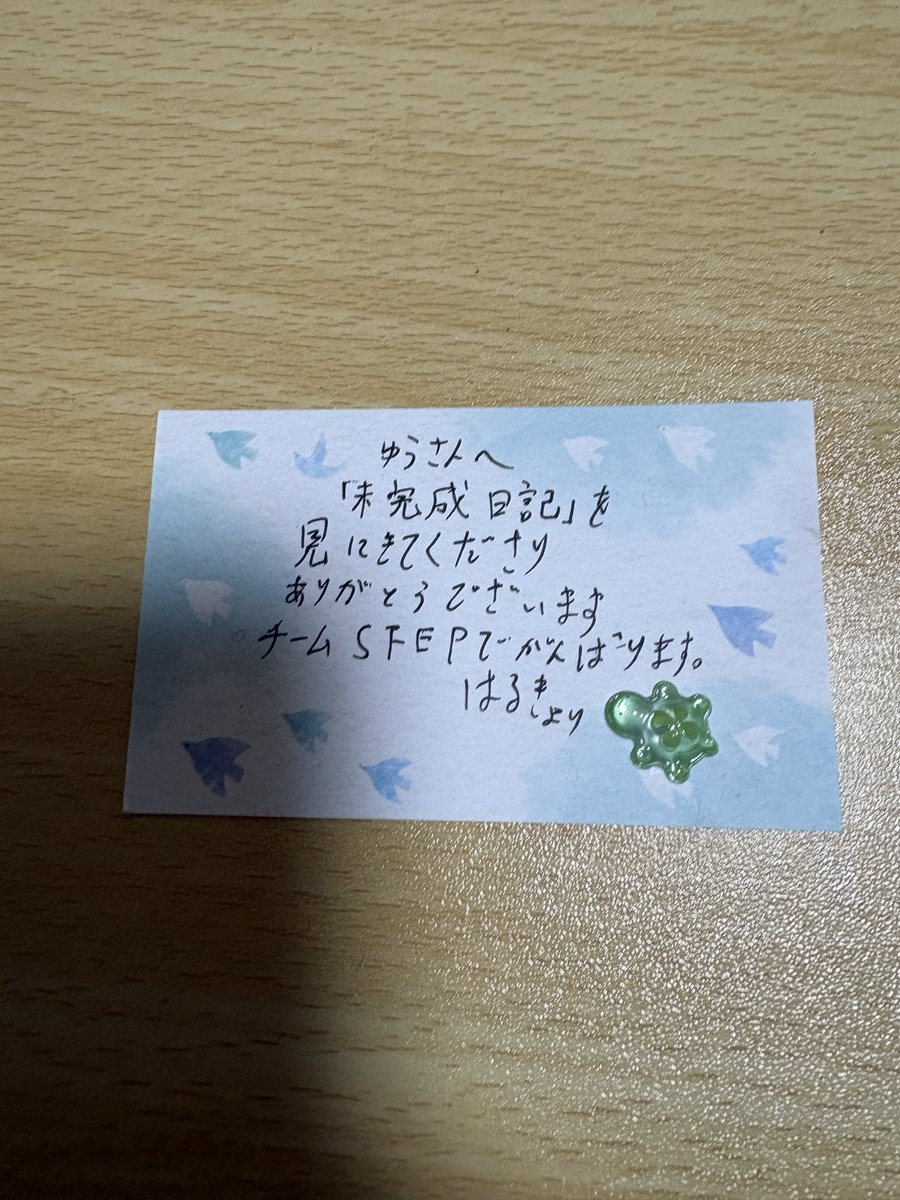 ゆうさんへ
「未完成日記」を
見にきてくださり
ありがとうございます
チームSTEPでがんばります。
はるきより